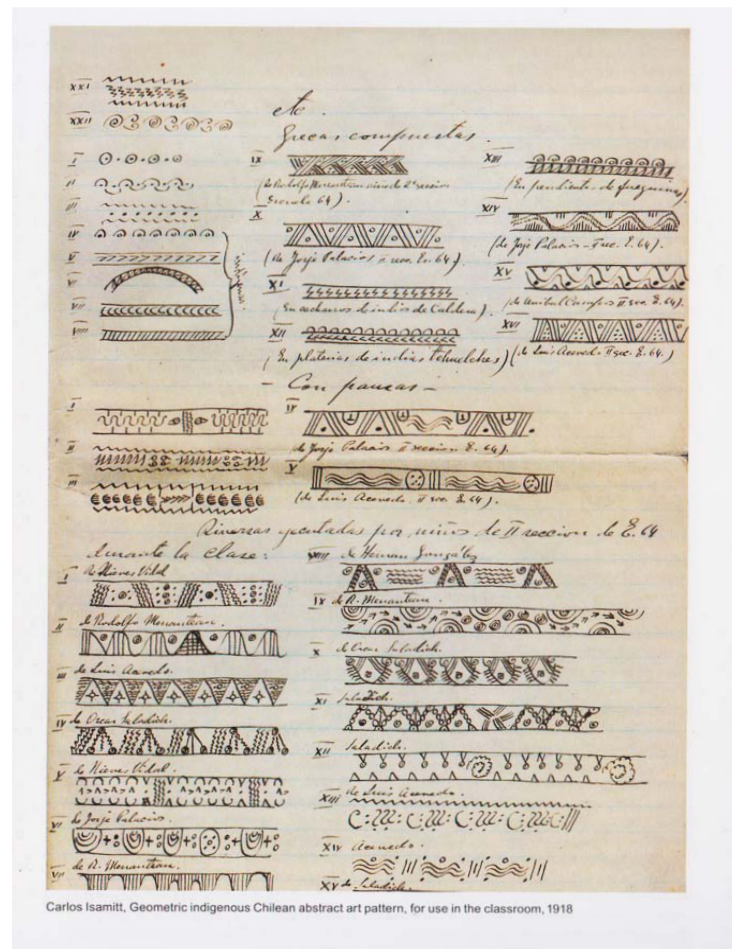 XXI
XXII
etc.
Grecas compuestas.
I
II
III
IV
V
VI
VII
VIII
IX
(de Rodolfo Menanteau niño de 2ª sección
Escuela 64).
X
(de Jorje Palacios II secc. E. 64).
XI
(En cacharros de indios de Caldera)
XII
(En platerías de indios Tehuelches)
XIII
(En pendiente de fueguinos)
XIV
(de Jorje Palacios - II sec. E. 64).
XV
(de Anibal Campos II sec. E. 64).
XVI
(de Luis Acevedo II sec. E. 64.)
- Con pausas -
I
II
III
IV
de Jorje Palacios II seccion E. 64).
V
(de Luis Acevedo. II sec. E. 64).
Diversas ejecutadas por niños de II seccion de E. 64
durante la clase:
I de Nieves Vidal
II de Rodolfo Menanteau.
III de Luis Acevedo.
IV de Oscar Saladich.
V de Nieves Vidal.
VI de Jorje Palacios.
VII de R. Menanteau.
VIII de Hernan González
IX de R. Menanteau.
X de Oscar Saladich.
XI Saladich.
XII Saladich.
XIII de Luis Acevedo.
XIV Acevedo.
XV de Saladich.
Carlos Isamitt, Geometric indigenous Chilean abstract art pattern, for use in the classroom, 1918